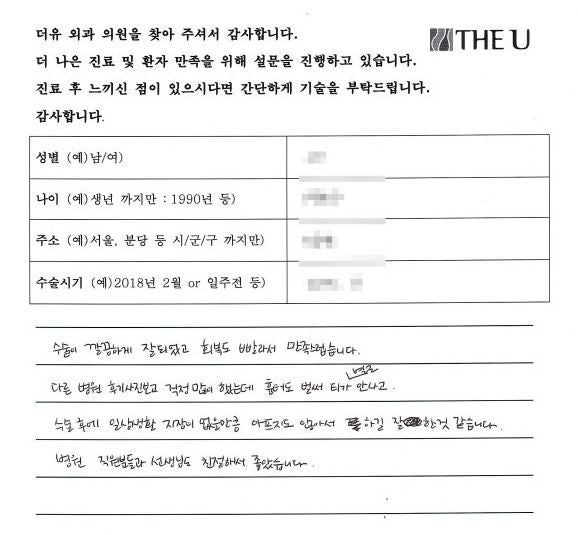 더유 외과 의원을 찾아 주셔서 감사합니다.
THE U
더 나은 진료 및 환자 만족을 위해 설문을 진행하고 있습니다.
진료 후 느끼신 점이 있으시다면 간단하게 기술을 부탁드립니다.
감사합니다.
성별 (예)남/여)
나이 (예)생년 까지만 : 1990년 등)
주소 (예)서울, 분당 등 시/군/구 까지만)
수술시기 (예)2018년 2월 or 일주전 등)
수술이 깔끔하게 잘되었고 회복도 빨라서 만족스럽습니다.
다른 병원 후기사진보고 걱정 많이 했는데 흉터도 벌써 티가 별로 안나고.
수술 후에 일상생활 지장이 없을만큼 아프지도 않아서 하길 잘 한것 같습니다.
병원 직원분들과 선생님도 친절해서 좋았습니다.